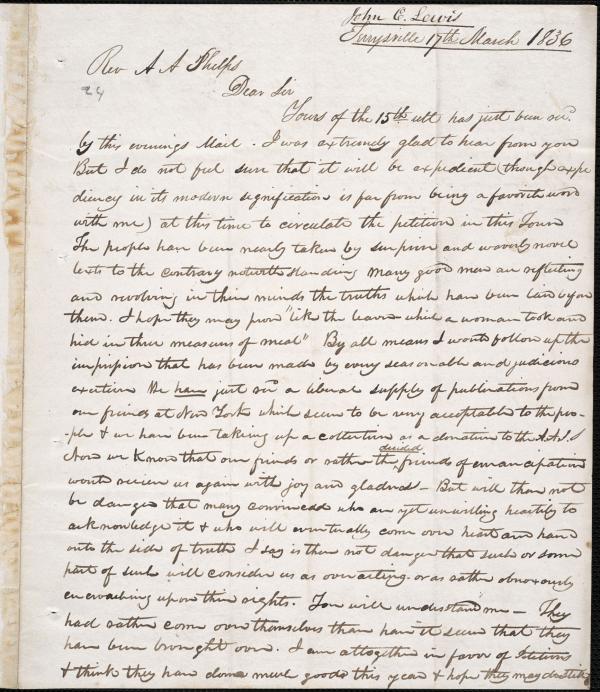 John E. Lewis
Terrysville 17th March 1836
Rev A A Phelps
24
Dear Sir
Yours of the 15th ult has just been recd.
by this evenings Mail. I was extremely glad to hear from you
But I do not feel sure that it will be expedient (though expe
diency in its modern signification is far from being a favorite word
with me) at this time to circulate the petition in this Town
The people have been nearly taken by surprise and
to the contrary notwithstanding many good men are reflecting
and revolving in their minds the truths which have been laid before
them. I hope they may prove "like the leaven which a woman took and
hid in three measures of meal" By all means I would follow up the
impression that has been made by every seasonable and judicious
exertion We have just recd a liberal supply of publications from
our friends at New York which seem to be very acceptable to the peo-
-ple & we have been taking up a collection as a donation to the A.A.S.S
Now we know that our friends or rather the decided friends of emancipation
would receive us again with joy and gladness - But will there not
be danger that many convinced who are yet unwilling heartily to
acknowledge it & who will eventually come over heart and hand
onto the side of truth I say is there not danger that such or some
part of such will consider us as overacting or as rather obnoxiously
encroaching upon their rights. You will understand me - They
had rather come over themselves than have it seem that they
have been brought over. I am altogether in favor of Petitions
& think they have done much good this year & hope they may